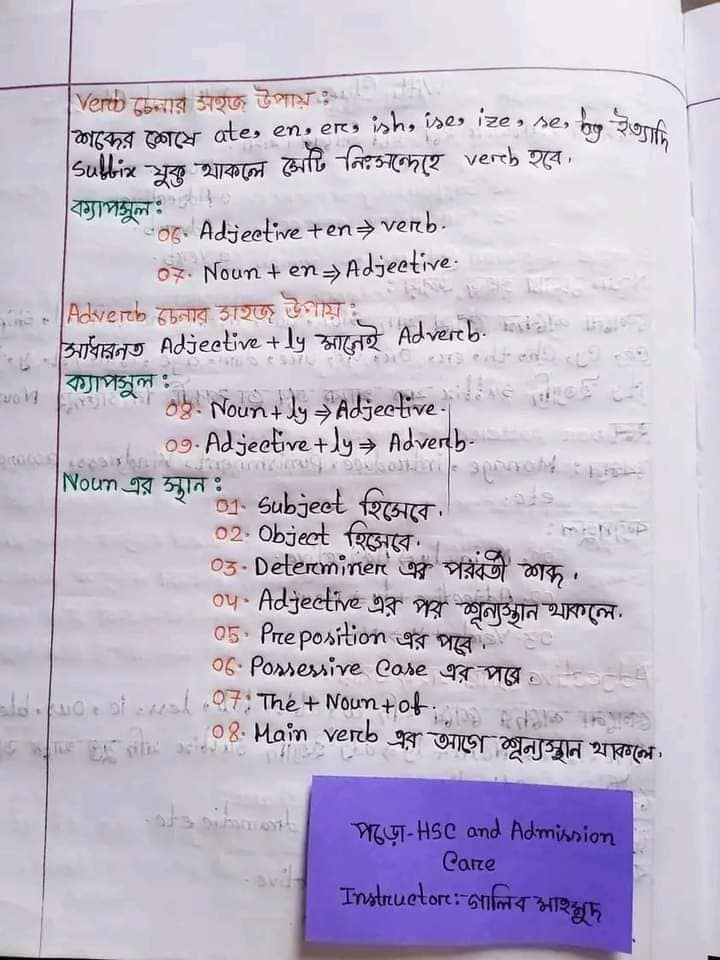 Verb চেনার সহজ উপায় :
শব্দের শেষে ate, en, er, ish, ise, ize, se, by ইত্যাদি
Suffix যুক্ত থাকলে সেটি নিঃসন্দেহে verb হবে.
ক্যাপসুল :
06. Adjective + en ⇒ verb.
07. Noun + en ⇒ Adjective.
Adverb চেনার সহজ উপায় :
সাধারনত Adjective + ly মানেই Adverb.
ক্যাপসুল :
08. Noun + ly ⇒ Adjective.
09. Adjective + ly ⇒ Adverb.
Noun এর স্থান :
01. Subject হিসেবে.
02. Object হিসেবে.
03. Determiner এর পরবর্তী শব্দ.
04. Adjective এর পর শূন্যস্থান থাকলে.
05. Preposition এর পরে.
06. Possessive Case এর পরে.
07. The + Noun + of.
08. Main verb এর আগে শূন্যস্থান থাকলে.
পড়ো-HSC and Admission
Care
Instructor:-গালিব মাহমুদ